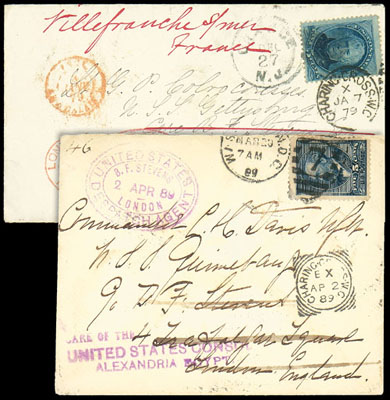 Villefranche s/mer
France
27
N.J.
CHARING CROSS.W.C.
X
JA 7
79
G. P. Colvocoresses
U.S.S. Gettysburg
46
UNITED STATES
B.F. STEVENS
2 APR 89
LONDON
DESPATCH AGENT
WASHINGTON, D.C.
MAR 20
7 AM
89
Commander C. H. Davis U.S.N.
U.S.S. Quinnebaug
℅ B. F. Stevens
4 Trafalgar Square
London England.
CHARING CROSS.W.C
EX
AP 2
89
CARE OF THE
UNITED STATES CONSUL
ALEXANDRIA EGYPT